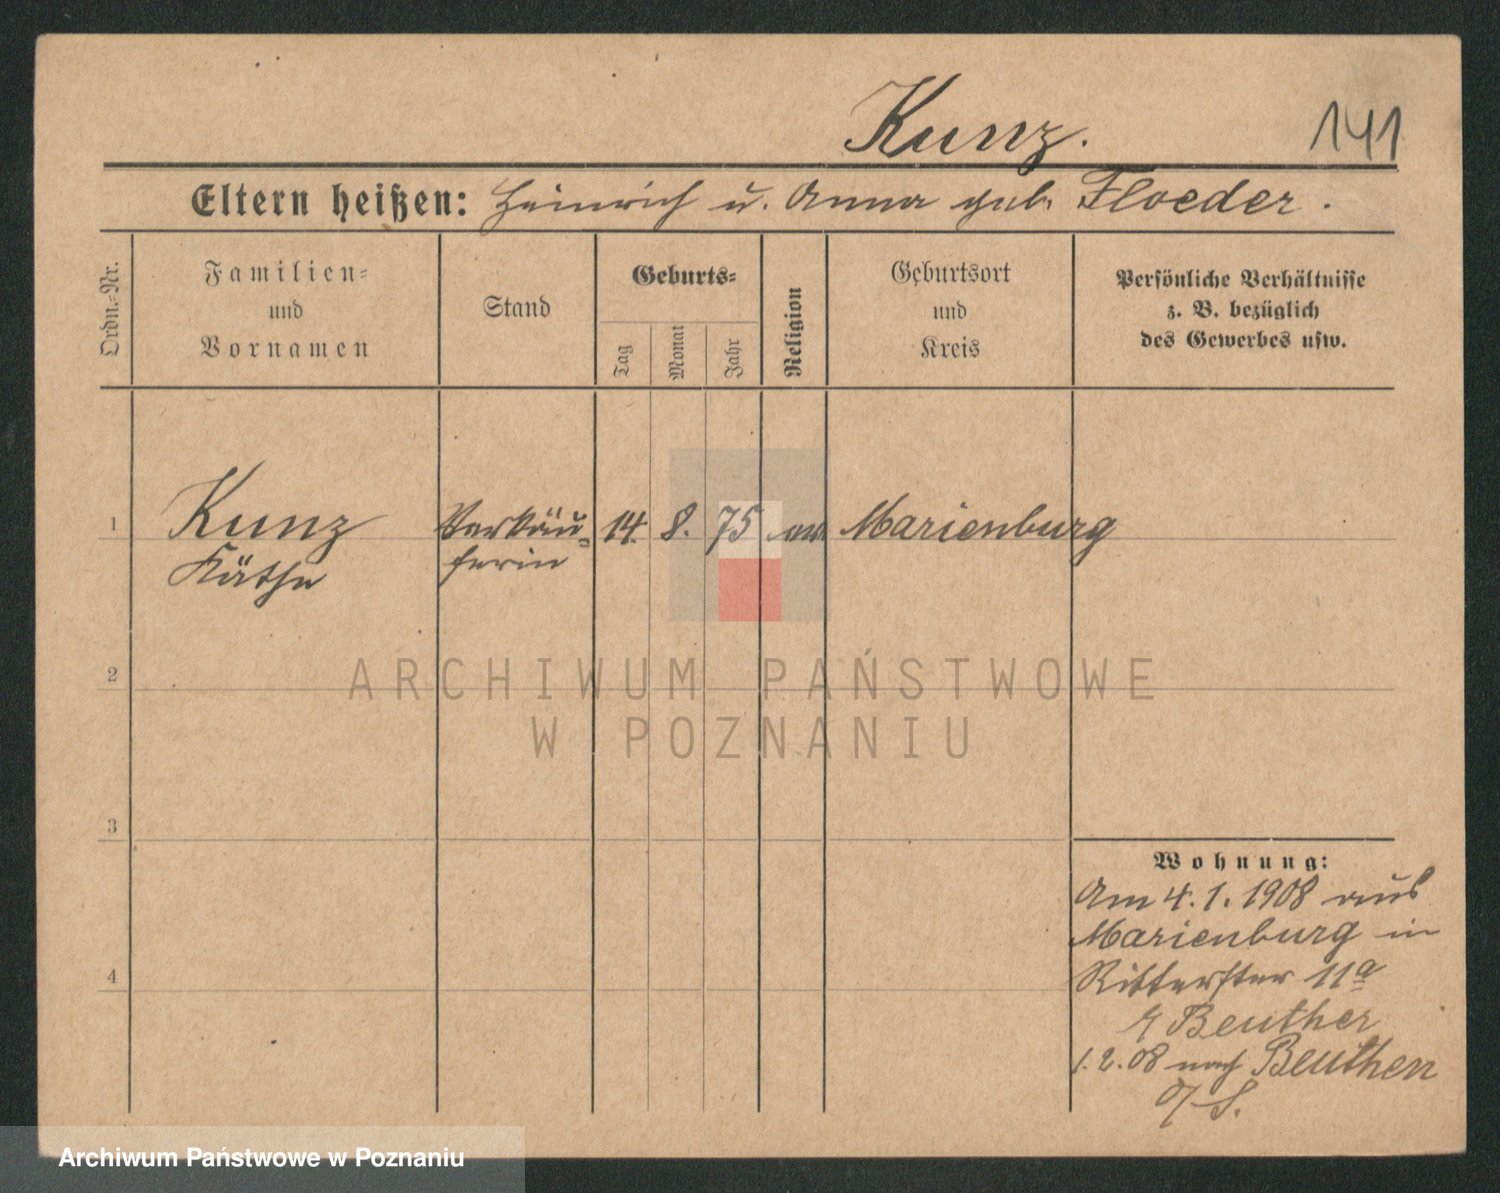 Kunz.
141
Eltern heißen: Heinrich u. Anna geb. Floeder.
Ordn.=Nr.
Familien=
und
Vornamen
Stand
Geburts=
Tag
Monat
Jahr
Religion
Geburtsort
und
Kreis
Persönliche Verhältnisse
z. B. bezüglich
des Gewerbes usw.
1
Kunz
Käthe
Verkäu=
ferin
14.
8.
75
ev.
Marienburg
2
ARCHIWUM PAŃSTWOWE
W POZNANIU
3
Wohnung:
Am 4.1.1908 aus
Marienburg in
Ritterstr 11a
Beuther
1.2.08 nach Beuthen
O/S.
4
Archiwum Państwowe w Poznaniu